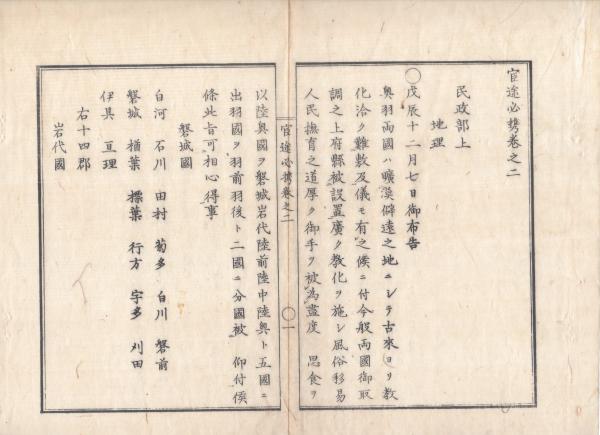 官途必携卷之二
民政部上
地理
〇戊辰十二月七日御布告
奥羽兩國ハ曠漠僻遠之地ニシテ古來ヨリ教
化洽ク難敷及儀モ有之候ニ付今般兩國御取
調之上府縣被設置廣ク教化ヲ施シ風俗移易
人民撫育之道厚ク御手ヲ被爲盡度 思食ヲ
官途必携卷之二
〇一
以陸奥國ヲ磐城岩代陸前陸中陸奥ト五國ニ
出羽國ヲ羽前羽後ト二國ニ分國被 仰付候
條此旨可相心得事
磐城國
白河 石川 田村 菊多 白川 磐前
磐城 楢葉 標葉 行方 宇多 刈田
伊具 亘理
右十四郡
岩代國